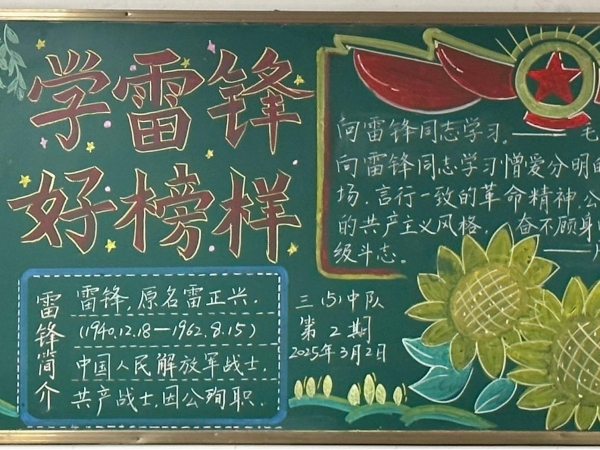 学雷锋
好榜样
雷锋简介
雷锋，原名雷正兴．
（1940.12.18—1962.8.15）
中国人民解放军战士．
共产战士，因公殉职．
三（5）中队
第2期
2025年3月2日
向雷锋同志学习。——毛
向雷锋同志学习憎爱分明的
场．言行一致的革命精神，公
的共产主义风格． 奋不顾身
级斗志。